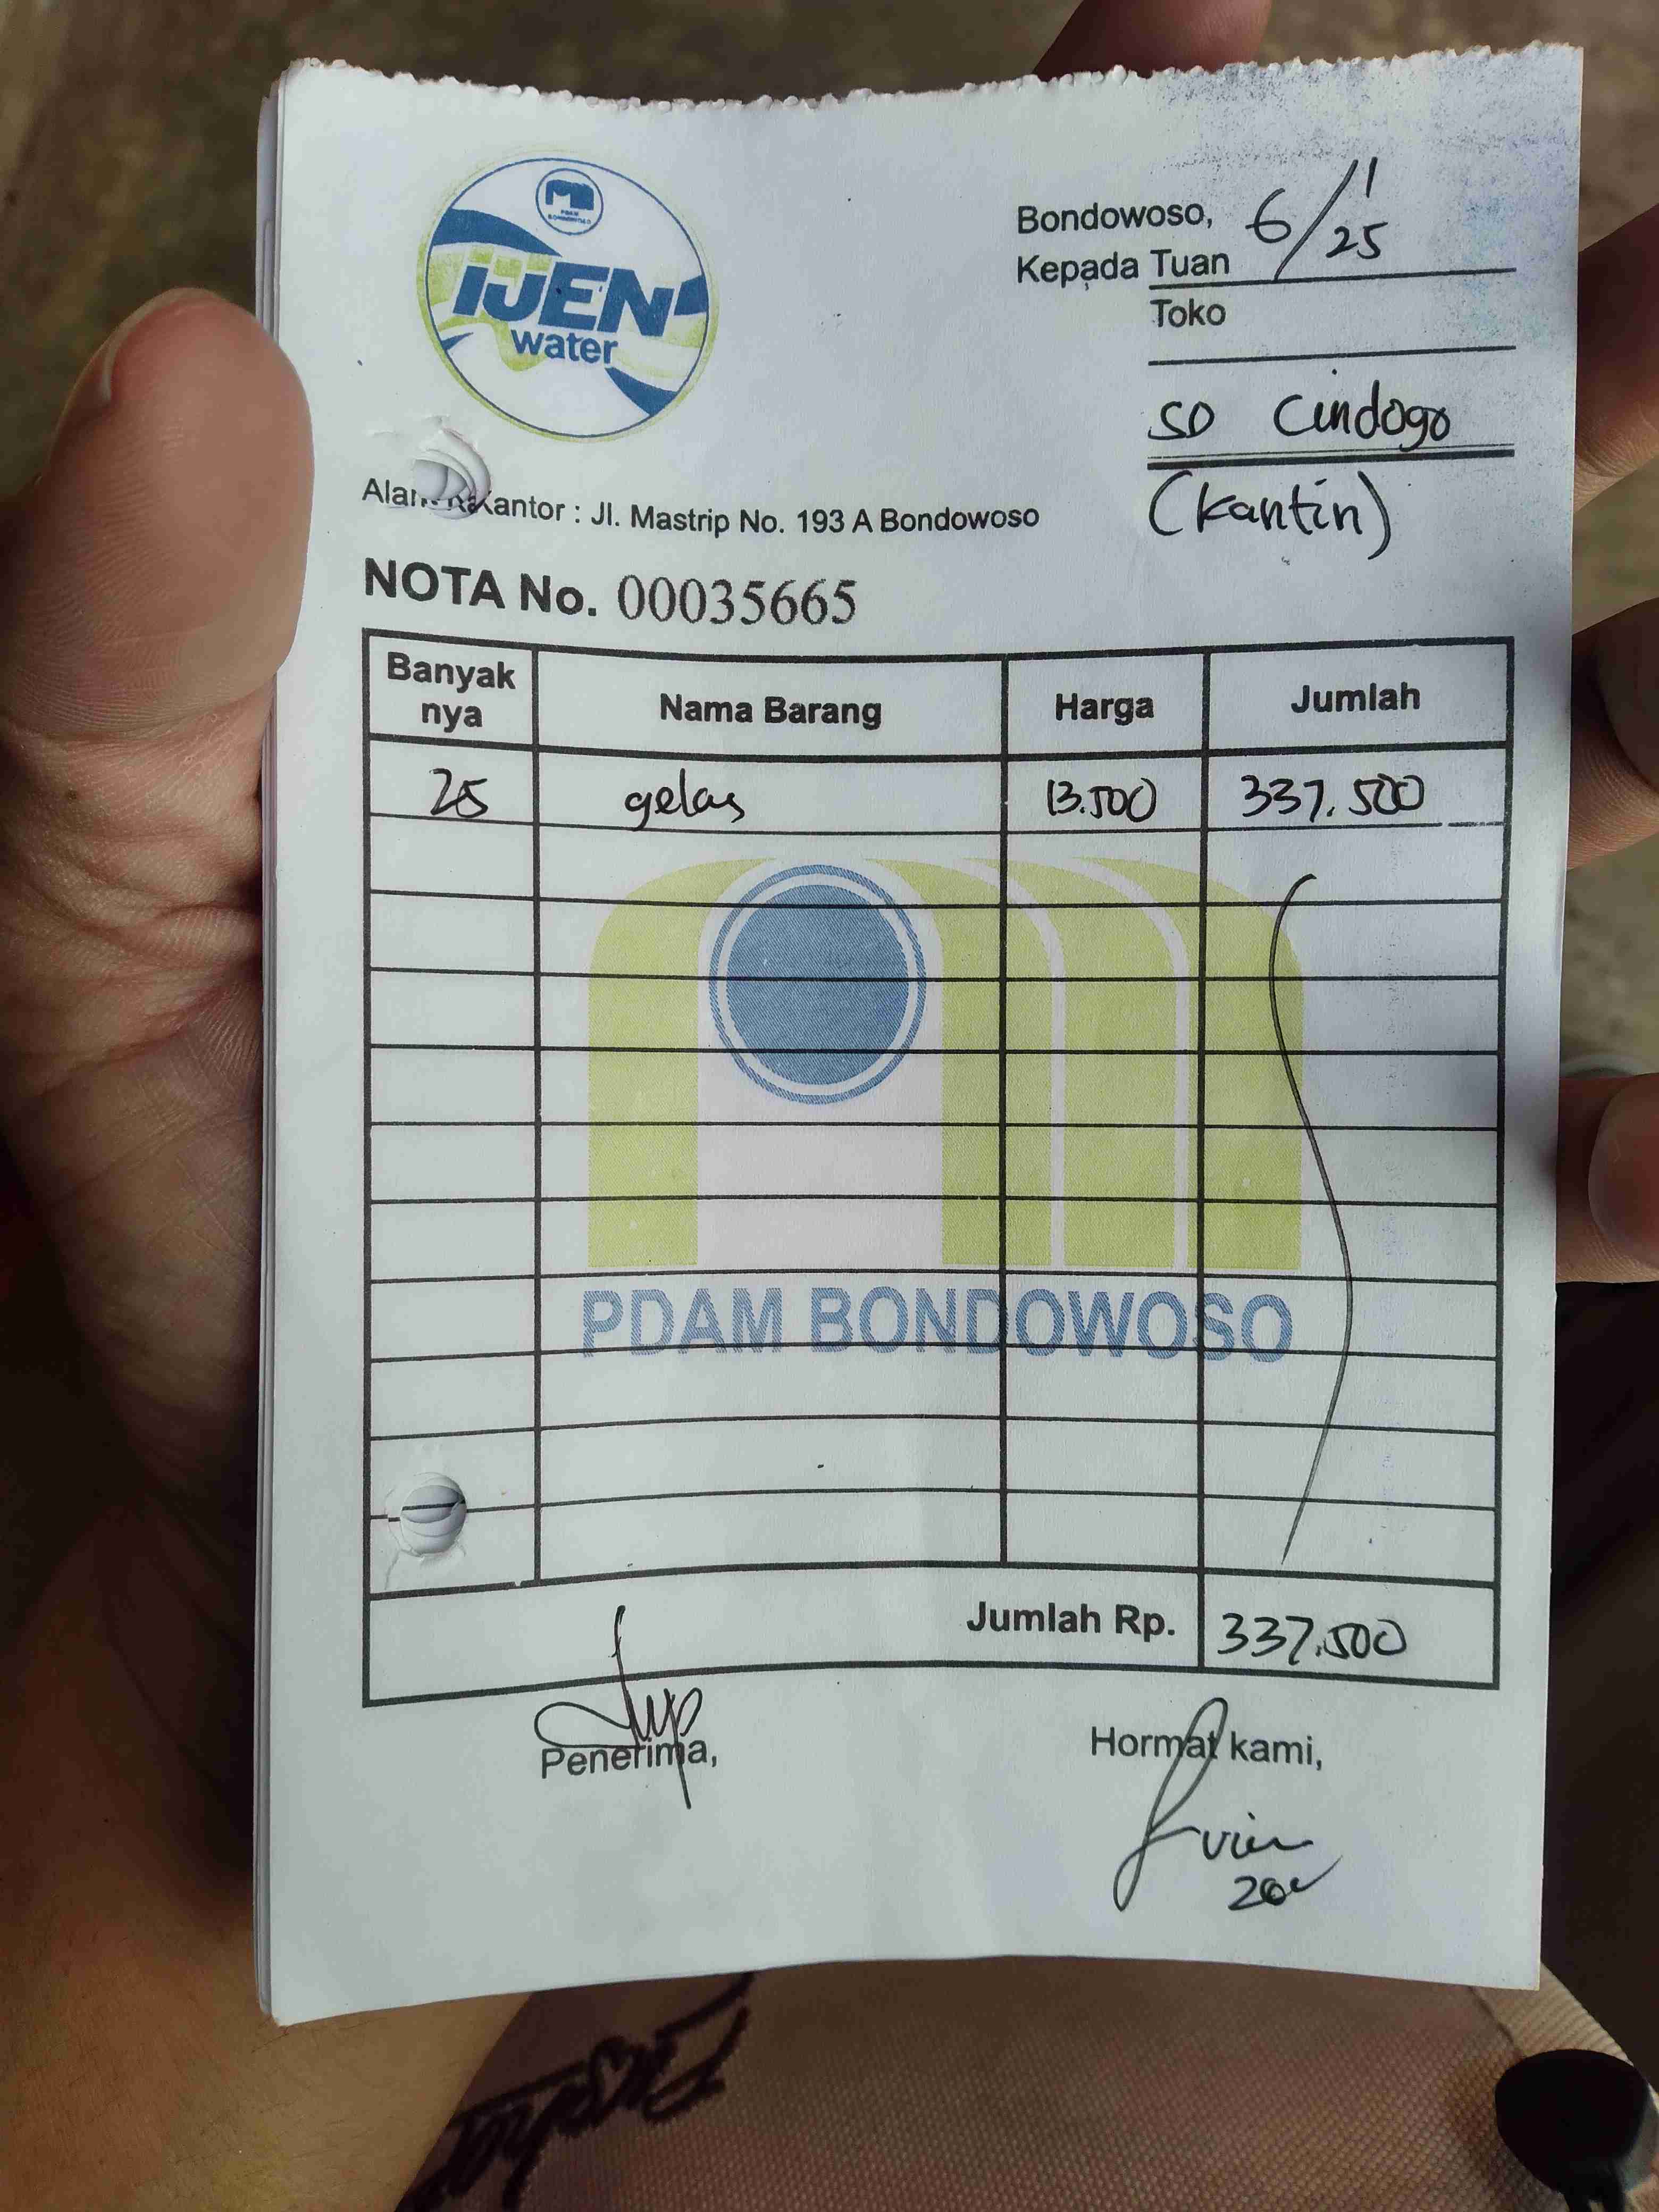 PDAM
BONDOWOSO
IJEN
water
Bondowoso, 6/1/25
Kepada Tuan
Toko
SD Cindogo
(Kantin)
Kantor : Jl. Mastrip No. 193 A Bondowoso
NOTA No. 00035665
Banyak nya Nama Barang Harga Jumlah
25 gelas 13.500 337.500
PDAM BONDOWOSO
Jumlah Rp. 337.500
Penerima, Hormat kami,